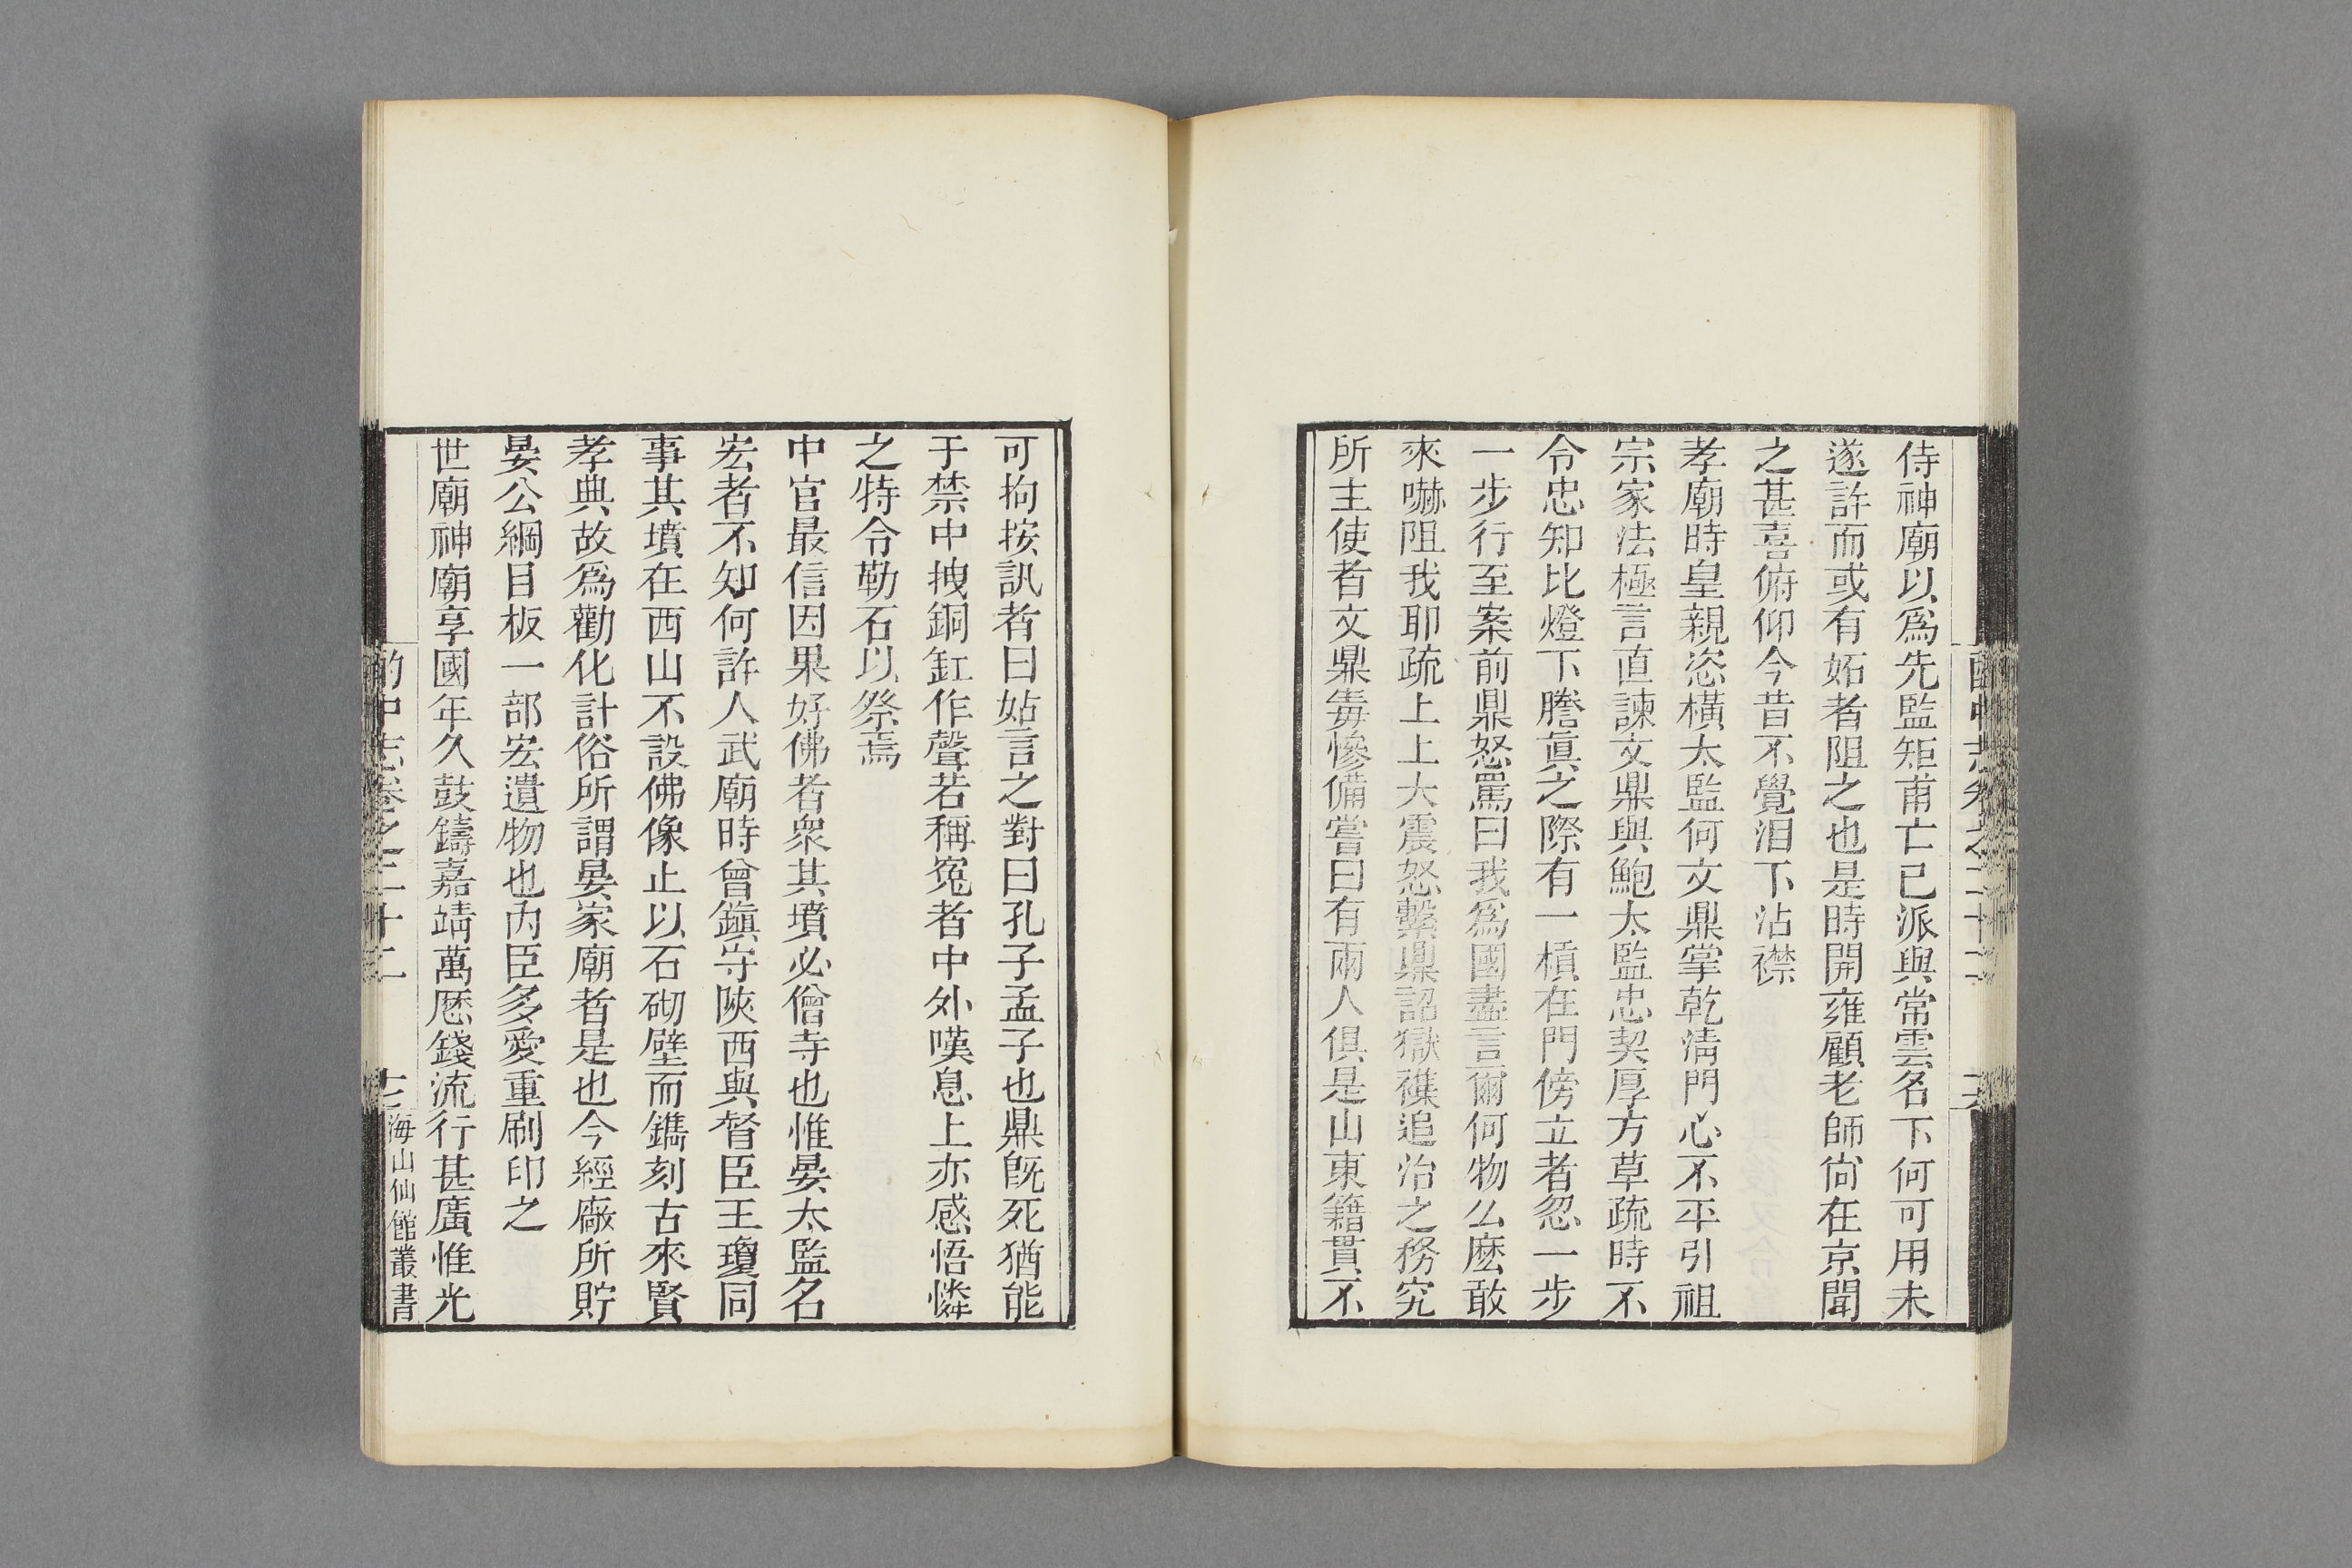 侍神廟以爲先監矩甫亡已派與常雲名下何可用未
遂許而或有妬者阻之也是時開雍顧老師尙在京聞
之甚喜俯仰今昔不覺泪下沾襟
孝廟時皇親恣橫太監何文鼎掌乾淸門心不平引祖
宗家法極言直諫文鼎與鮑太監忠契厚方草疏時不
令忠知比燈下謄眞之際有一槓在門傍立者忽一步
一步行至案前鼎怒罵曰我爲國盡言爾何物么麽敢
來嚇阻我耶疏上上大震怒繫鼎詔獄襍追治之務究
所主使者文鼎毒慘備嘗曰有兩人俱是山東籍貫不
可拘按訊者曰姑言之對曰孔子孟子也鼎旣死猶能
于禁中拽銅缸作聲若稱寃者中外嘆息上亦感悟憐
之特令勒石以祭焉
中官最信因果好佛者衆其墳必僧寺也惟晏太監名
宏者不知何許人武廟時曾鎭守陝西與督臣王瓊同
事其墳在西山不設佛像止以石砌壁而鐫刻古來賢
孝典故爲勸化計俗所謂晏家廟者是也今經廠所貯
晏公綱目板一部宏遺物也內臣多愛重刷印之
世廟神廟享國年久鼓鑄嘉靖萬厯錢流行甚廣惟光
酌中志卷之二十二
海山仙館叢書